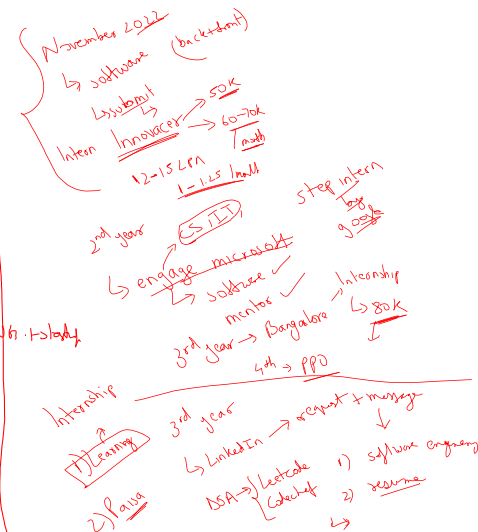 November 2022
↳ software (back+front)
↳ submit
Intern Innovacer → 50K
→ 60-70K / month
12-15 LPA
1-1.25 /month
2nd year CS, IT
step intern
by
google
↳ engage microsoft
↳ software ✓
mentor ✓
3rd year → Bangalore → Internship
↳ 80K
4th → PPO
Internship
1) Learning
2) Paisa
3rd year
↳ LinkedIn → request + message
DSA → Leetcode
Codechef
1) software
2) resume